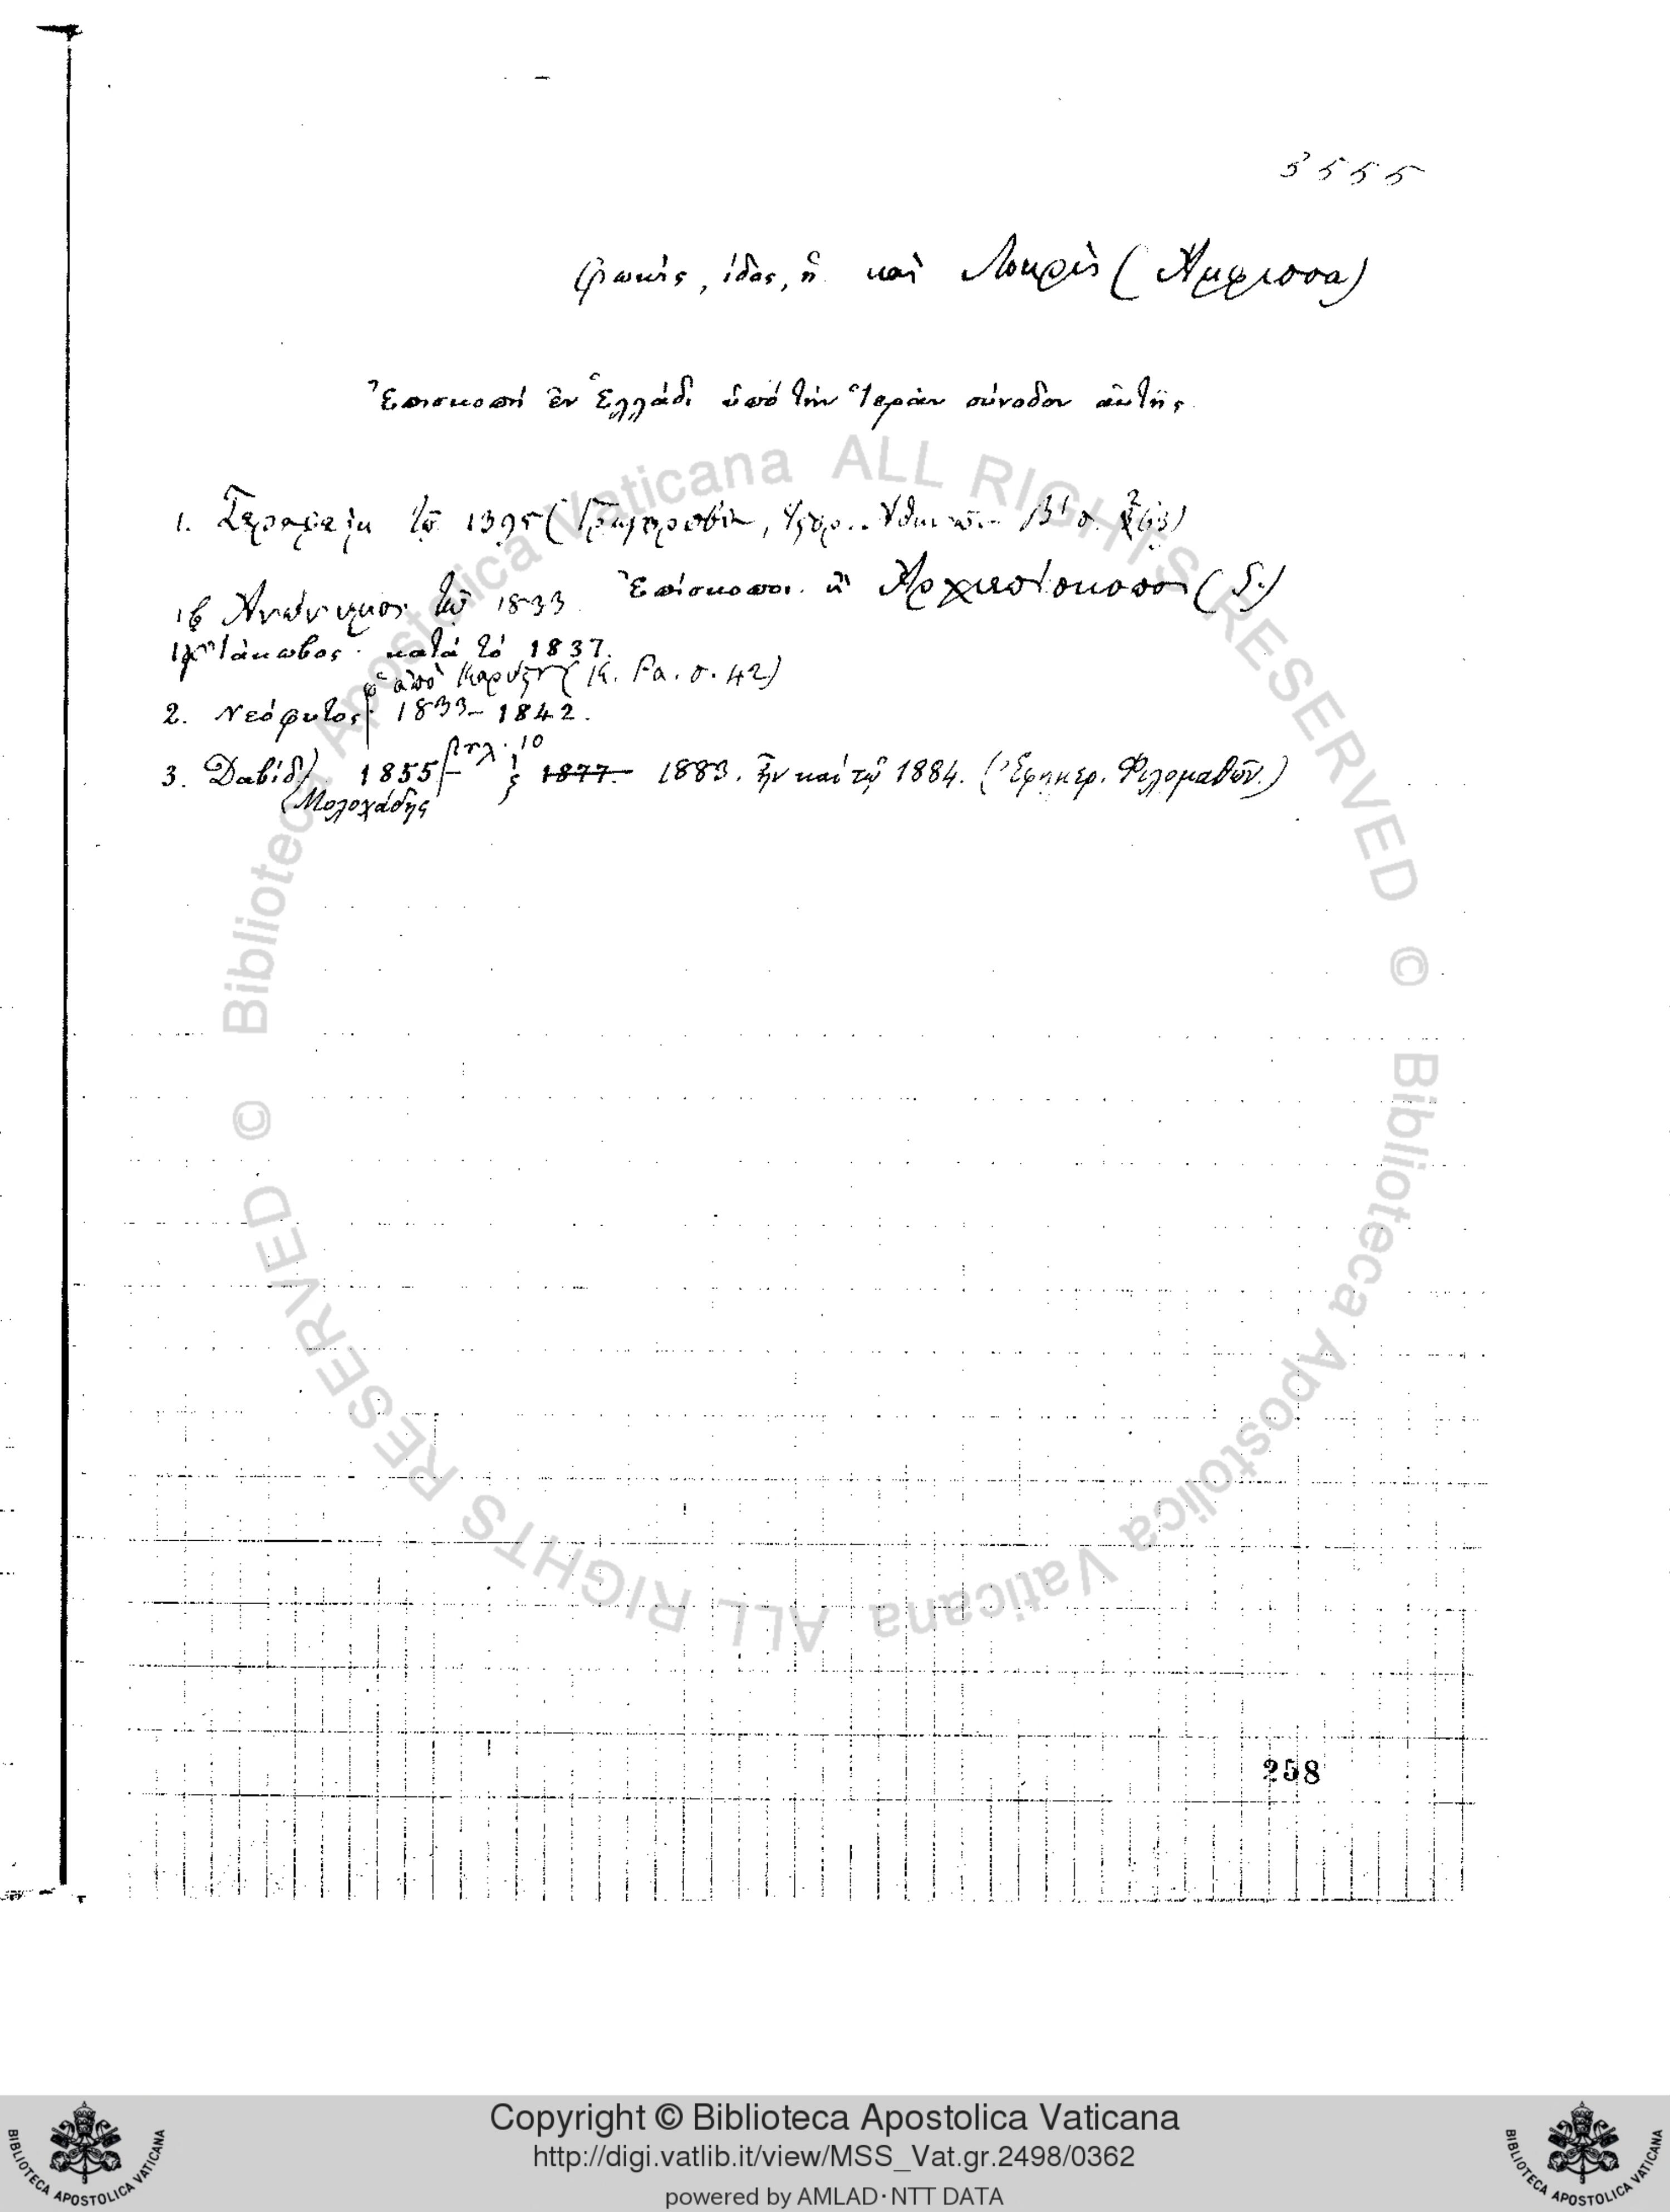 5555
Φωκὶς, ίδος, ἢ καὶ Λοκρὶς (Ἄμφισσα)
Ἐπισκοπὴ ἐν Ἑλλάδι ὑπὸ τὴν Ἱερὰν σύνοδον αὐτῆς.
1. Σεραφεὶμ τῷ 1395 (
Ἐπίσκοποι ἢ Ἀρχιεπίσκοποι
1β Ἀνώνυμος τῷ 1833
1γ Ἰάκωβος · κατὰ τὸ 1837.
ὁ ἀπὸ (Κ. Ρα. σ. 42)
2. Νεόφυτος 1833-1842.
10
3. Δαβίδ 1855 1877 1883. ἦν καὶ τῷ 1884. (Ἐφημερ. Φιλομαθῶν.)
(Μολοχάδης
258
Biblioteca Apostolica Vaticana ALL RIGHTS RESERVED ©
Biblioteca Apostolica Vaticana ALL RIGHTS RESERVED ©
Copyright © Biblioteca Apostolica Vaticana
http://digi.vatlib.it/view/MSS_Vat.gr.2498/0362
powered by AMLAD·NTT DATA
BIBLIOTECA APOSTOLICA VATICANA
BIBLIOTECA APOSTOLICA VATICANA